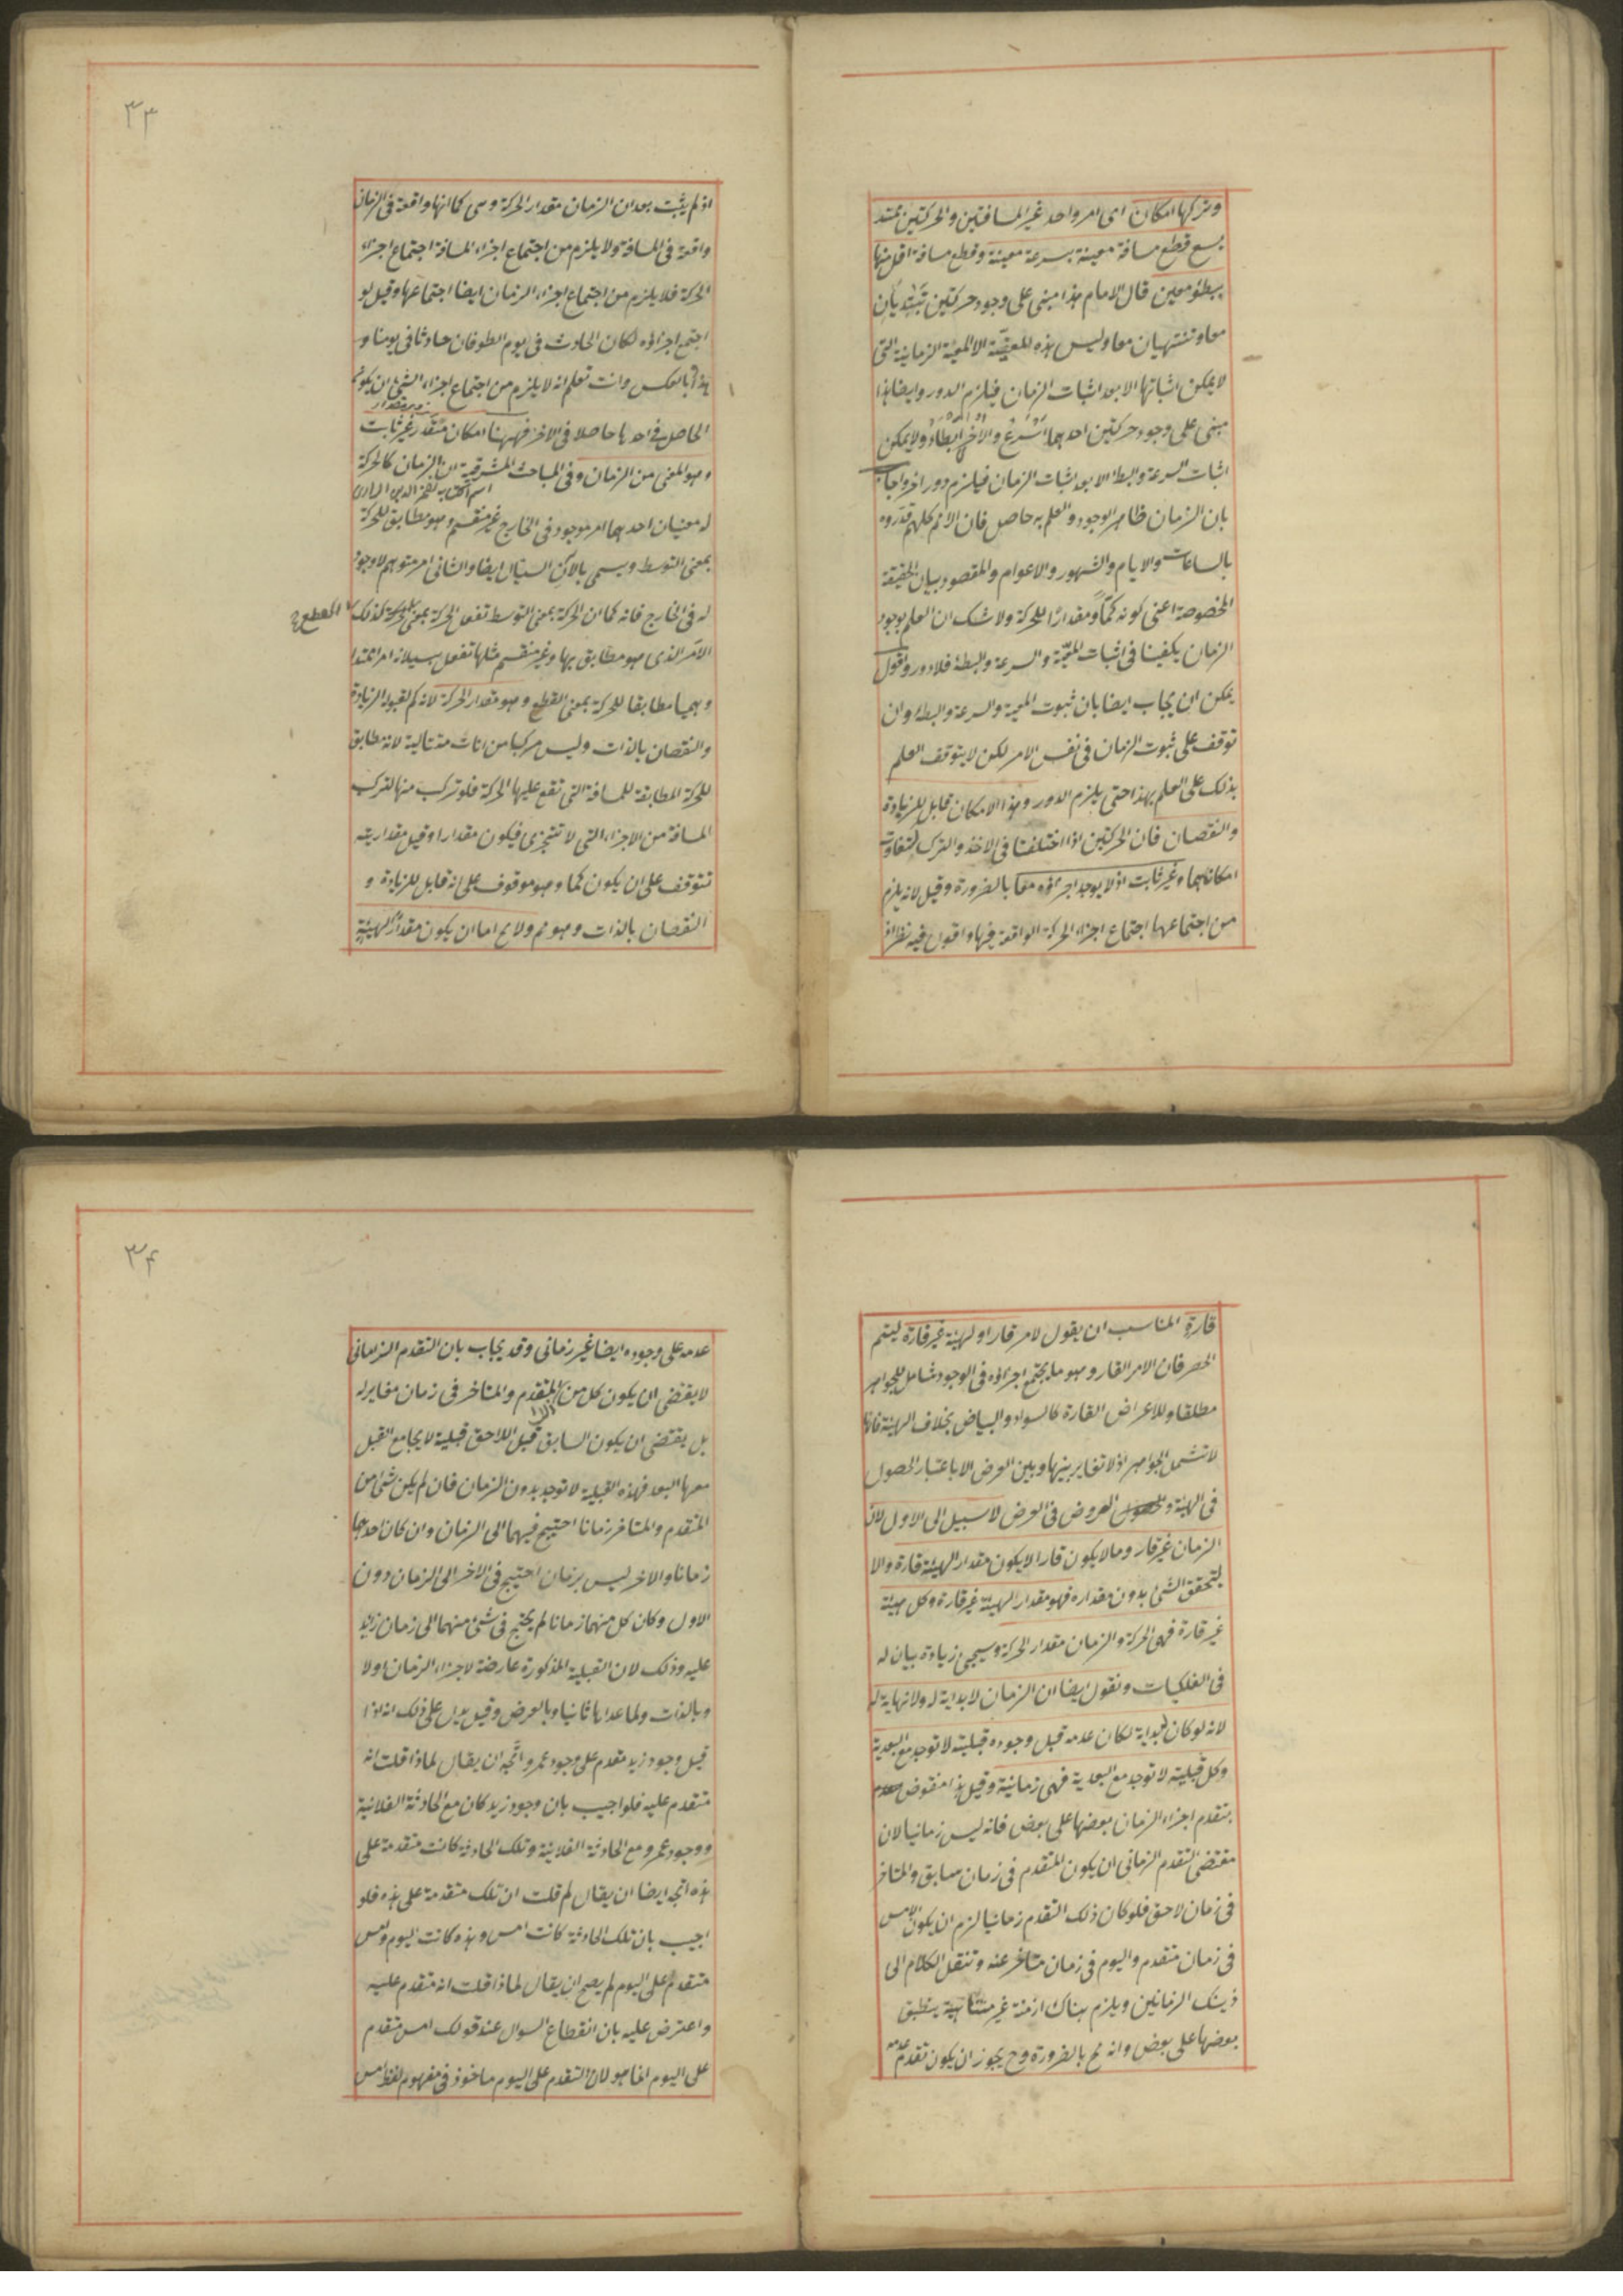 وتركها امكان اى امر واحد غير المسافتين والحركتين ممتد
يسع قطع مسافة معينة بسرعة معينة وقطع مسافة اقل منها
ببطؤ معين قال الامام هذا مبنى على وجود حركتين تبتديان
معا وتنتهيان معا وليس هذه المعيّة الا المعية الزمانية التى
لا يمكن اثباتها الا بعد اثبات الزمان فيلزم الدور وايضا هذا
مبنى على وجود حركتين احديهما اسرع والاخر ابطاء ولا يمكن
اثبات السرعة والبطء الا بعد اثبات الزمان فيلزم دور اخر واجاب
بان الزمان ظاهر الوجود والعلم به حاصل فان الامم كلهم قدروه
بالساعات والايام والشهور والاعوام والمقصود بيان الحقيقة
المخصوصة اعنى كونه كمّا ومقدارا للحركة ولا شك ان العلم بوجود
الزمان يكفينا فى اثبات المعيّة والسرعة والبطء فلا دور واقول
يمكن ان يجاب ايضا بان ثبوت المعية والسرعة والبطء وان
توقف على ثبوت الزمان فى نفس الامر لكن لا يتوقف العلم
بذلك على العلم بهذا حتى يلزم الدور وهذا الامكان قابل للزيادة
والنقصان فان الحركتين اذا اختلفتا فى الاخذ والترك تتفاوت
امكاناهما وغير ثابت اذ لا يوجد اجزاؤه معا بالضرورة وقيل لانه يلزم
من اجتماعها اجتماع اجزاء الحركة الواقعة فيها واقول فيه نظر اذ
٣٣
اذ لم يثبت بعد ان الزمان مقدار الحركة وهى كما انها واقعة فى الزمان
واقعة فى المسافة ولا يلزم من اجتماع اجزاء المسافة اجتماع اجزاء
الحركة فلا يلزم من اجتماع اجزاء الزمان ايضا اجتماعها وقيل لو
اجتمع اجزاؤه لكان الحادث فى يوم الطوفان حادثا فى يومنا و
هذا بالعكس وانت تعلم انه لا يلزم من اجتماع اجزاء الشئ ان يكون
الحاصل فى احدها حاصلا فى الاخر فههنا امكان متقدر غير ثابت
وهو المعنى من الزمان وفى المباحث المشرقية ان الزمان كالحركة
اسم كتاب لفخر الدين الرازى
له معنيان احدهما امر موجود فى الخارج غير منقسم وهو مطابق للحركة
بمعنى التوسط ويسمى بالآن السيال ايضا والثانى امر متوهم لا وجود
له فى الخارج فانه كما ان الحركة بمعنى التوسط تفعل الحركة بمعنى كذلك
القطع
الامر الذى هو مطابق بها وغير منقسم مثلها تفعل بسيلانه امرا ممتدا
وهميا مطابقا للحركة بمعنى القطع وهو مقدار الحركة لانه كم لقبوله الزيادة
والنقصان بالذات وليس مركبا من انات متتالية لانه مطابق
للحركة المطابقة للمسافة التى تقع عليها الحركة فلو تركب منها لتركب
المسافة من الاجزاء التى لا تتجزى فيكون مقدارا وقيل مقداريته
تتوقف على ان يكون كما وهو موقوف على انه قابل للزيادة و
النقصان بالذات وهو مم ولا يخ اما ان يكون مقدارا لهيئة
قارة المناسب ان يقول لامر قار او لهيئة غير قارة ليتم
الحصر فان الامر القار وهو ما يجتمع اجزاؤه فى الوجود شامل للجواهر
مطلقا وللاعراض القارة كالسواد والبياض بخلاف الهيئة فانها
لا تشمل الجواهر اذ لا تغاير بينها وبين العرض الا باعتبار الحصول
فى الهيئة والعروض فى العرض لا سبيل الى الاول لان
الزمان غير قار وما لا يكون قارا لا يكون مقدارا لهيئة قارة والا
لتحقق الشئ بدون مقداره فهو مقدار لهيئة غير قارة وكل هيئة
غير قارة فهى الحركة والزمان مقدار الحركة وسيجئ زيادة بيان له
فى الفلكيات ونقول ايضا ان الزمان لا بداية له ولا نهاية له
لانه لو كان له بداية لكان عدمه قبل وجوده قبلية لا توجد مع البعدية
وكل قبلية لا توجد مع البعدية فهى زمانية وقيل هذا منقوض
بتقدم اجزاء الزمان بعضها على بعض فانه ليس زمانيا لان
مقتضى التقدم الزمانى ان يكون المتقدم فى زمان سابق والمتاخر
فى زمان لاحق فلو كان ذلك التقدم زمانيا لزم ان يكون الامس
فى زمان متقدم واليوم فى زمان متاخر عنه وننقل الكلام الى
ذينك الزمانين ويلزم هناك ازمنة غير متناهية ينطبق
بعضها على بعض وانه مح بالضرورة وح يجوز ان يكون تقدم عدمه
٣٤
عدمه على وجوده ايضا غير زمانى وقد يجاب بان التقدم الزمانى
لا يقتضى ان يكون كل من المتقدم والمتاخر فى زمان مغاير له
بل يقتضى ان يكون السابق قبل اللاحق قبلية لا يجامع القبل
معها البعد فهذه القبلية لا توجد بدون الزمان فان لم يكن شئ من
المتقدم والمتاخر زمانا احتيج فيهما الى الزمان وان كان احدهما
زمانا والاخر ليس بزمان احتيج فى الاخر الى الزمان دون
الاول وكان كل منهما زمانا لم يحتج فى شئ منهما الى زمان زايد
عليه وذلك لان القبلية المذكورة عارضة لاجزاء الزمان اولا
وبالذات ولما عداها ثانيا وبالعرض وقيل يدل على ذلك انه اذا
قيل وجود زيد مقدم على وجود عمرو اتجه ان يقال لماذا قلت انه
متقدم عليه فلو اجيب بان وجود زيد كان مع الحادثة الفلانية
ووجود عمرو مع الحادثة الفلانية وتلك الحادثة كانت متقدمة على
هذه اتجه ايضا ان يقال لم قلت ان تلك متقدمة على هذه فلو
اجيب بان تلك الحادثة كانت امس وهذه كانت اليوم وامس
متقدم على اليوم لم يصح ان يقال لماذا قلت انه متقدم عليه
واعترض عليه بان انقطاع السوال عند قولك امس متقدم
على اليوم انما هو لان التقدم على اليوم ماخوذ فى مفهوم لفظ امس